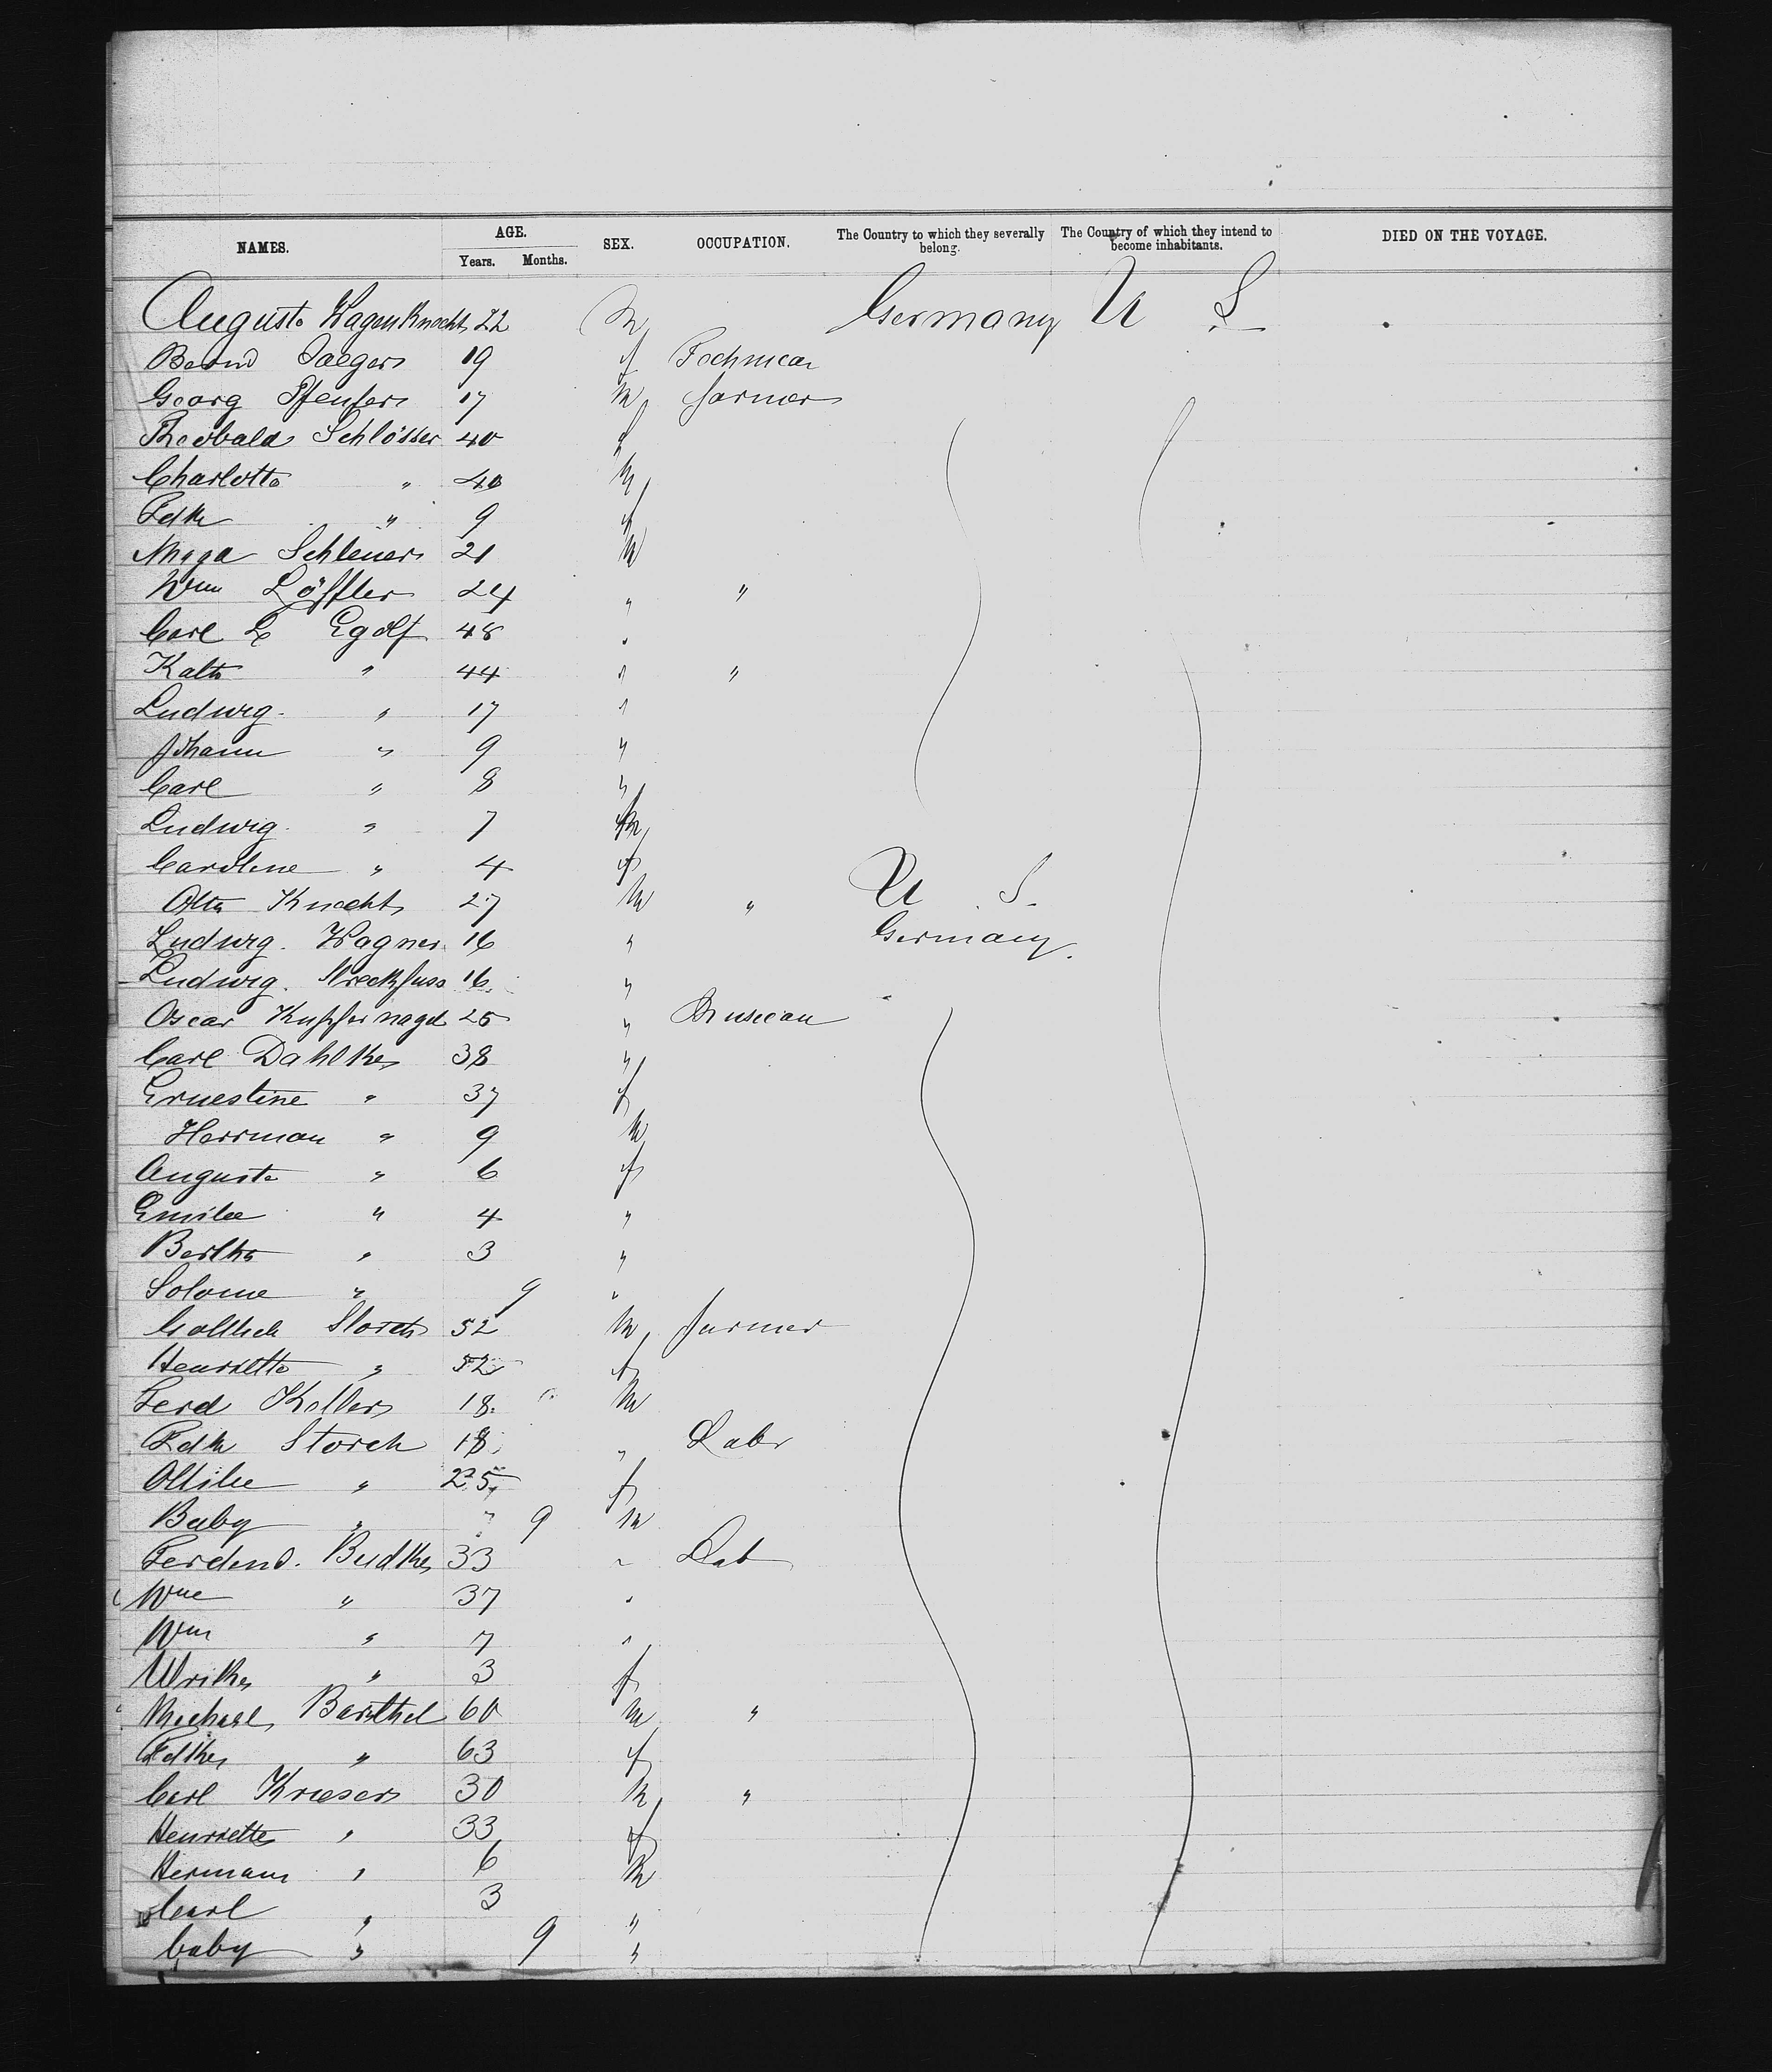 NAMES. AGE. Years. Months. SEX. OCCUPATION. The Country to which they severally belong. The Country of which they intend to become inhabitants. DIED ON THE VOYAGE.
Auguste Wagenknecht 22 m Germany U S
Bernd Jaeger 19 f
Georg 17 m farmer
Theobald Schlösser 40 f
Charlotte " 40 m
Fdk " 9 f
Schleuer 21 m
Wm Löffler 24 " "
Carl L Egolf 48 "
Kath " 44 " "
Ludwig " 17 "
Johann " 9 "
Carl " 8 "
Ludwig " 7 m
Caroline " 4 f
Otto Knecht 27 m " U S.
Ludwig Wagner 16 " Germany.
Ludwig. Streckfuss 16 "
Oscar Kupfernagel 25 " Musician
Carl Dahlke 38 "
Ernestine " 37 f
Herrman " 9 m
Auguste " 6 f
Emilie " 4 "
Bertha " 3 "
Solome " 9 "
Gottlieb Storch 52 m farmer
Henriette " 52 f
Ferd Keller 18 m
Fdk Storch 18 " Labr
Ottilie " 25 f
Baby " 9 m
Ferdind. Budke 33 " Lab
Wme " 37 "
Wm " 7 "
Ulrike " 3 f
Michael Barthel 60 m "
Fdke " 63 f
Carl Krieser 30 m "
Henriette " 33 f
Hermann " 6 m
Carl " 3 "
baby " 9 "